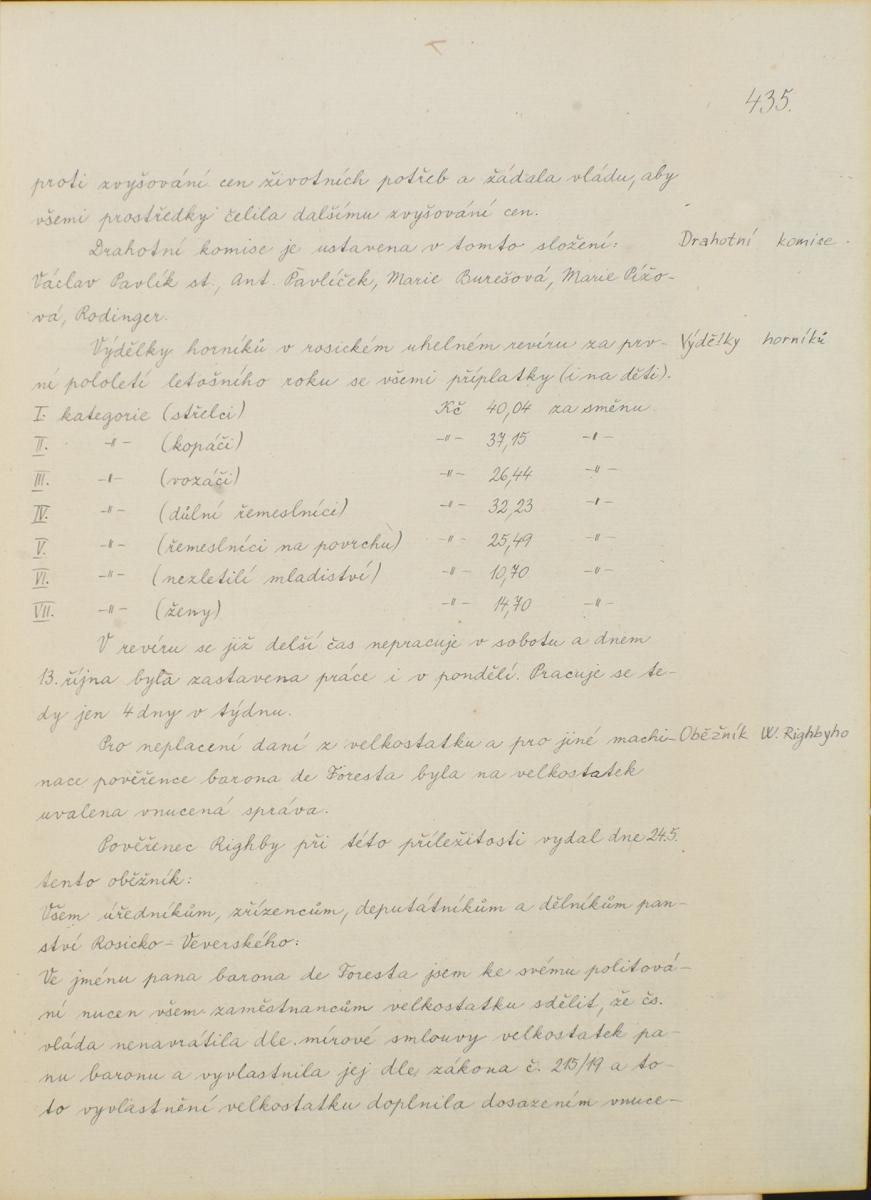 435.
proti zvyšování cen životních potřeb a žádala vládu, aby
všemi prostředky čelila dalšímu zvyšování cen.
Drahotní komise je ustavena v tomto složení: Drahotní komise.
Václav Pavlík st., Ant. Pavlíček, Marie Burešová, Marie Pížo-
vá, Rodinger.
Výdělky horníků v rosickém uhelném revíru za prv- Výdělky horníků
ní pololetí letošního roku se všemi příplatky (i na děti).
I. kategorie (střelci) Kč 40,04 za směnu
II. -"- (kopáči) -"- 37,15 -"-
III. -"- (vozáči) -"- 26,44 -"-
IV. -"- (důlní řemeslníci) -"- 32,23 -"-
V. -"- (řemeslníci na povrchu) -"- 25,49 -"-
VI. -"- (nezletilí mladiství) -"- 10,70 -"-
VII. -"- (ženy) -"- 14,70 -"-
V revíru se již delší čas nepracuje v sobotu a dnem
13. října byla zastavena práce i v pondělí. Pracuje se te-
dy jen 4 dny v týdnu.
Pro neplacení daní z velkostatku a pro jiné machi- Oběžník W. Righbyho
nace pověřence barona de Foresta byla na velkostatek
uvalena vnucená správa.
Pověřenec Righby při této příležitosti vydal dne 24.5.
tento oběžník:
Všem úředníkům, zřízencům, deputátníkům a dělníkům pan-
ství Rosicko-Veverského:
Ve jménu pana barona de Foresta jsem ke svému politová-
ní nucen všem zaměstnancům velkostatku sdělit, že čs.
vláda nenavrátila dle mírové smlouvy velkostatek pa-
nu baronu a vyvlastnila jej dle zákona č. 215/19 a to-
to vyvlastnění velkostatku doplnila dosazením vnuce-